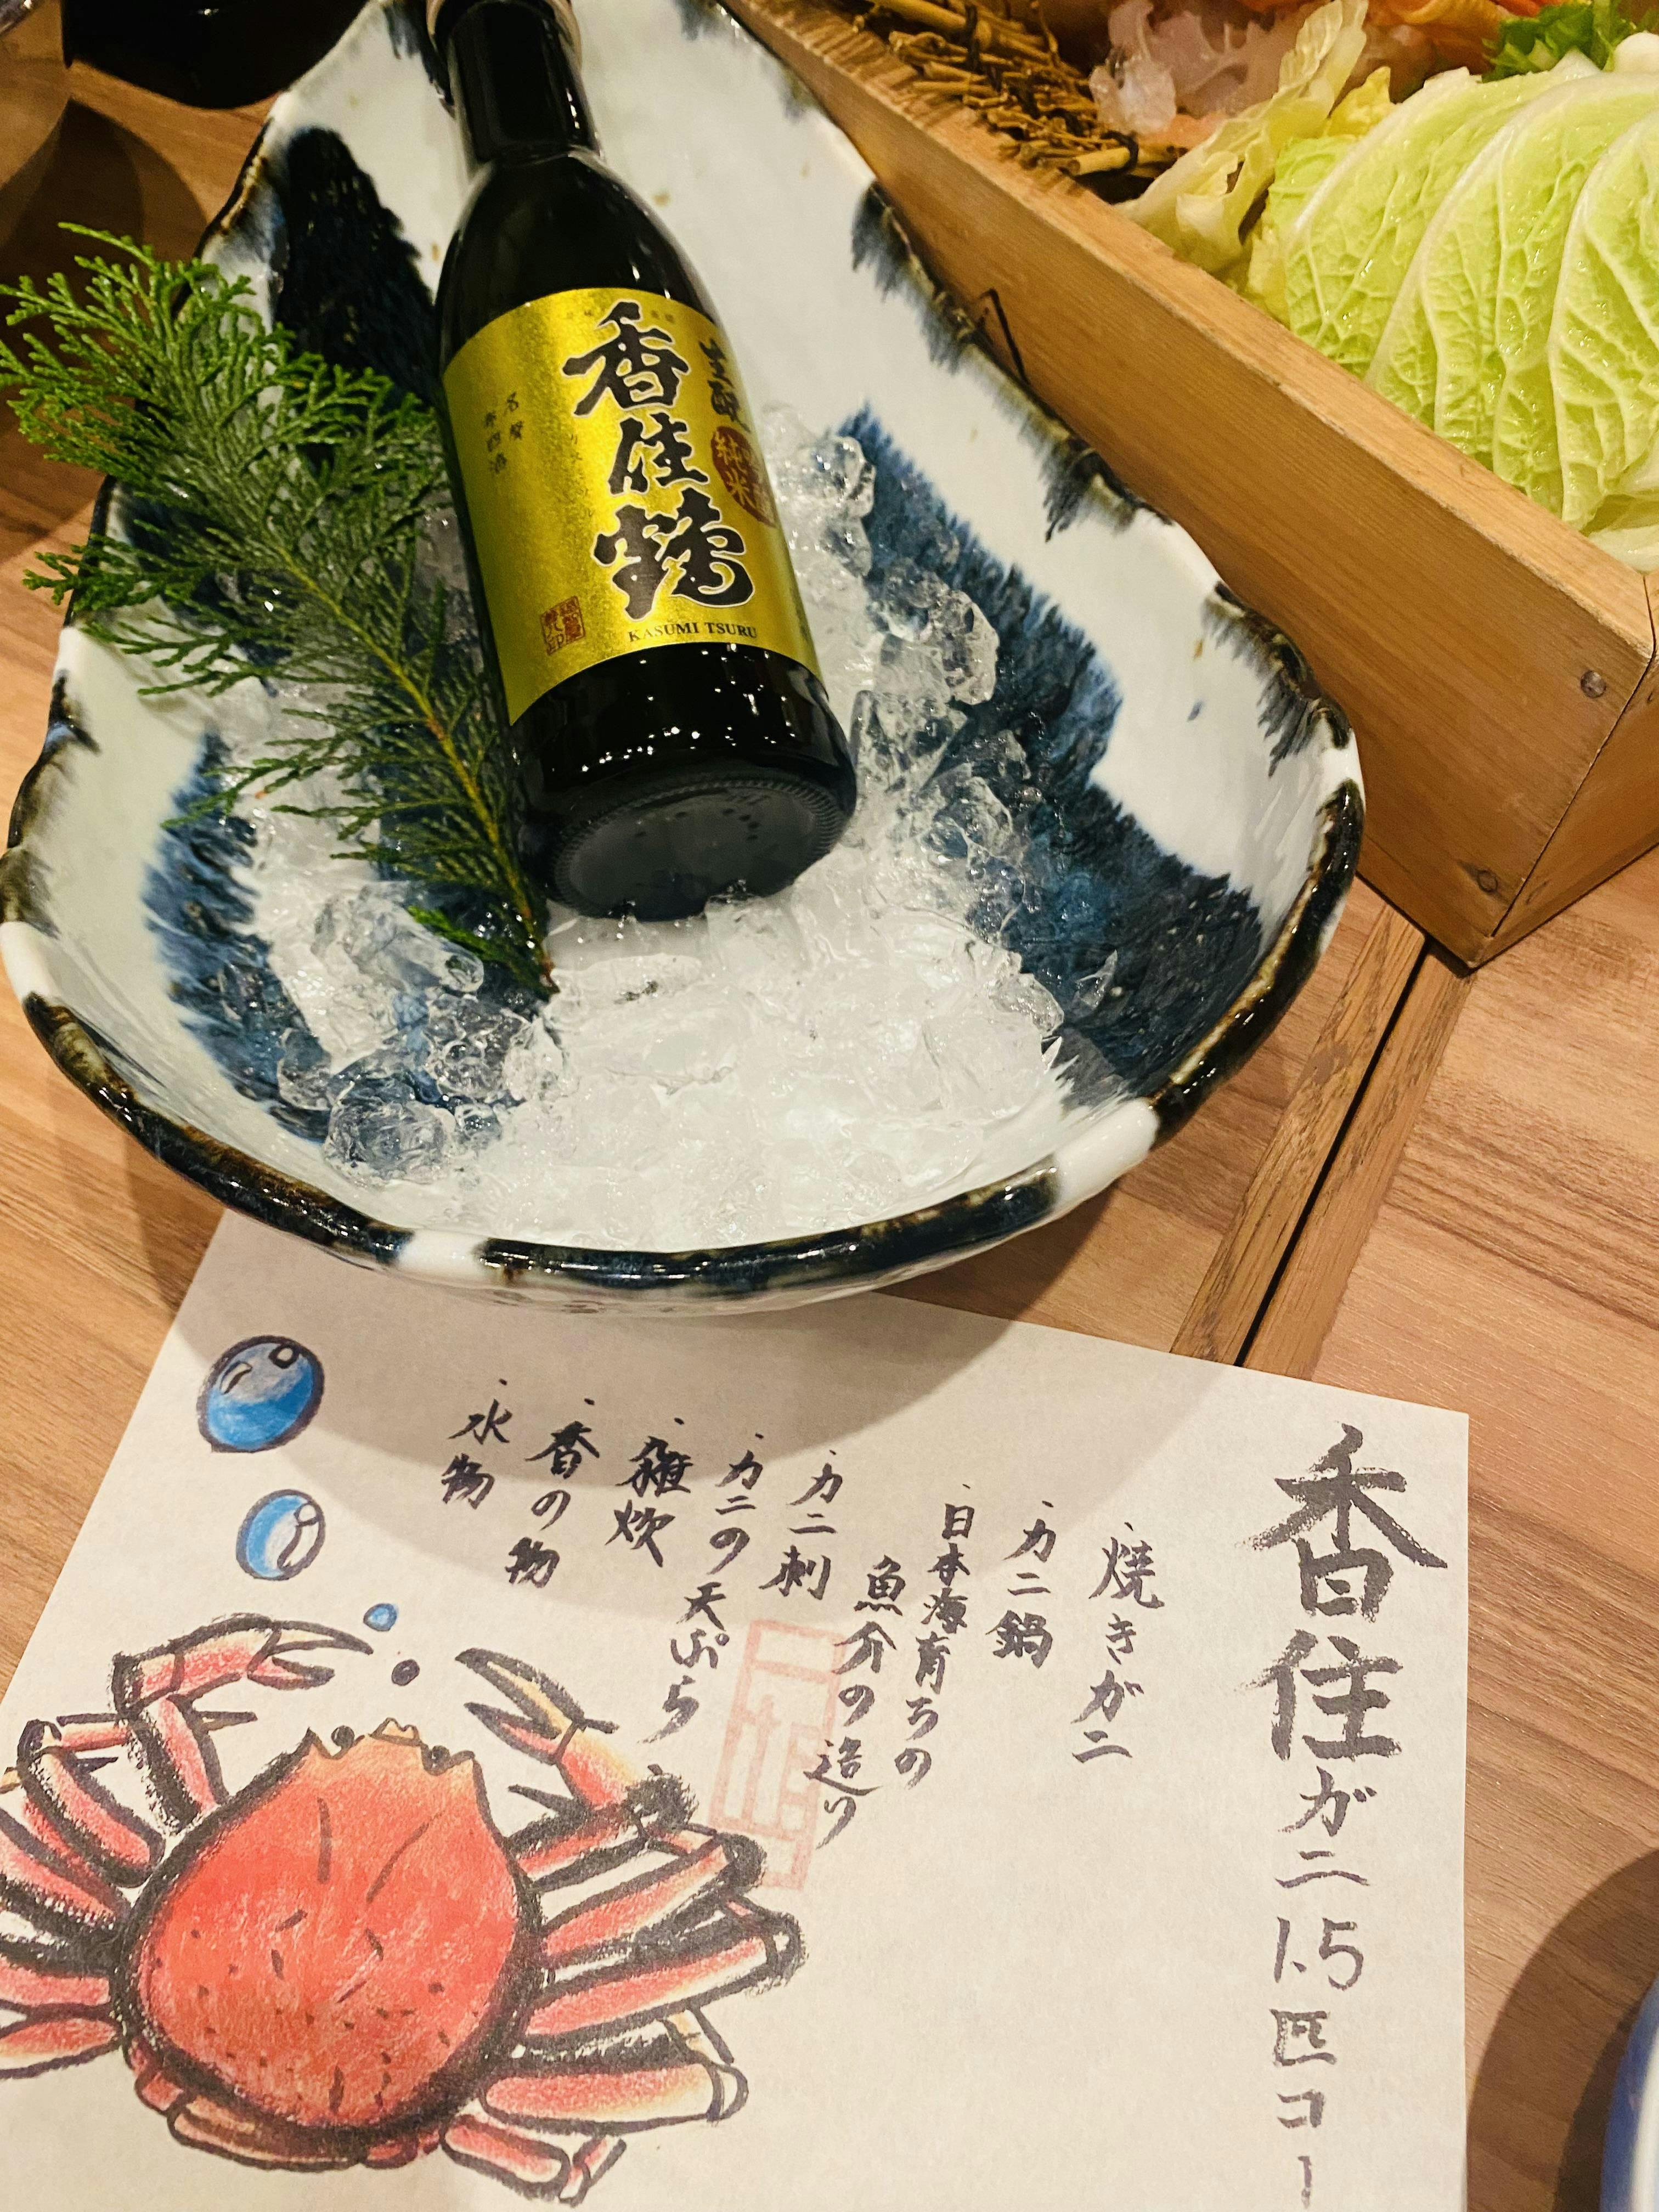 香住鶴
生酛
純米
KASUMI TSURU
香住ガニ1.5匹コー
・焼きガニ
・カニ鍋
・日本海育ちの
魚介の造り
・カニ刺
・カニの天ぷら
・雑炊
・香の物
・水物